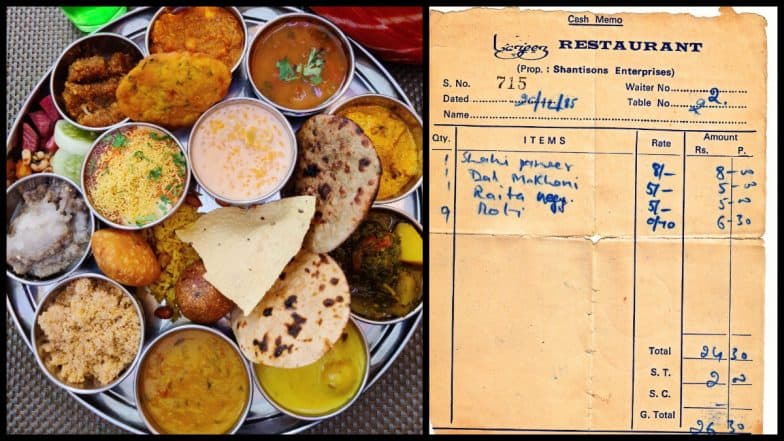 Cash Memo
Lazeez RESTAURANT
(Prop. : Shantisons Enterprises)
S. No. 715 Waiter No.
Dated 20/12/85 Table No. 2
Name
Qty. ITEMS Rate Amount
Rs. P.
1 Shahi paneer 8/- 8-00
1 Dal Makhani 5/- 5-00
1 Raita 5/- 5-00
9 Roti 0/70 6 30
Total 24 30
S. T. 2 00
S. C.
G. Total 26 30